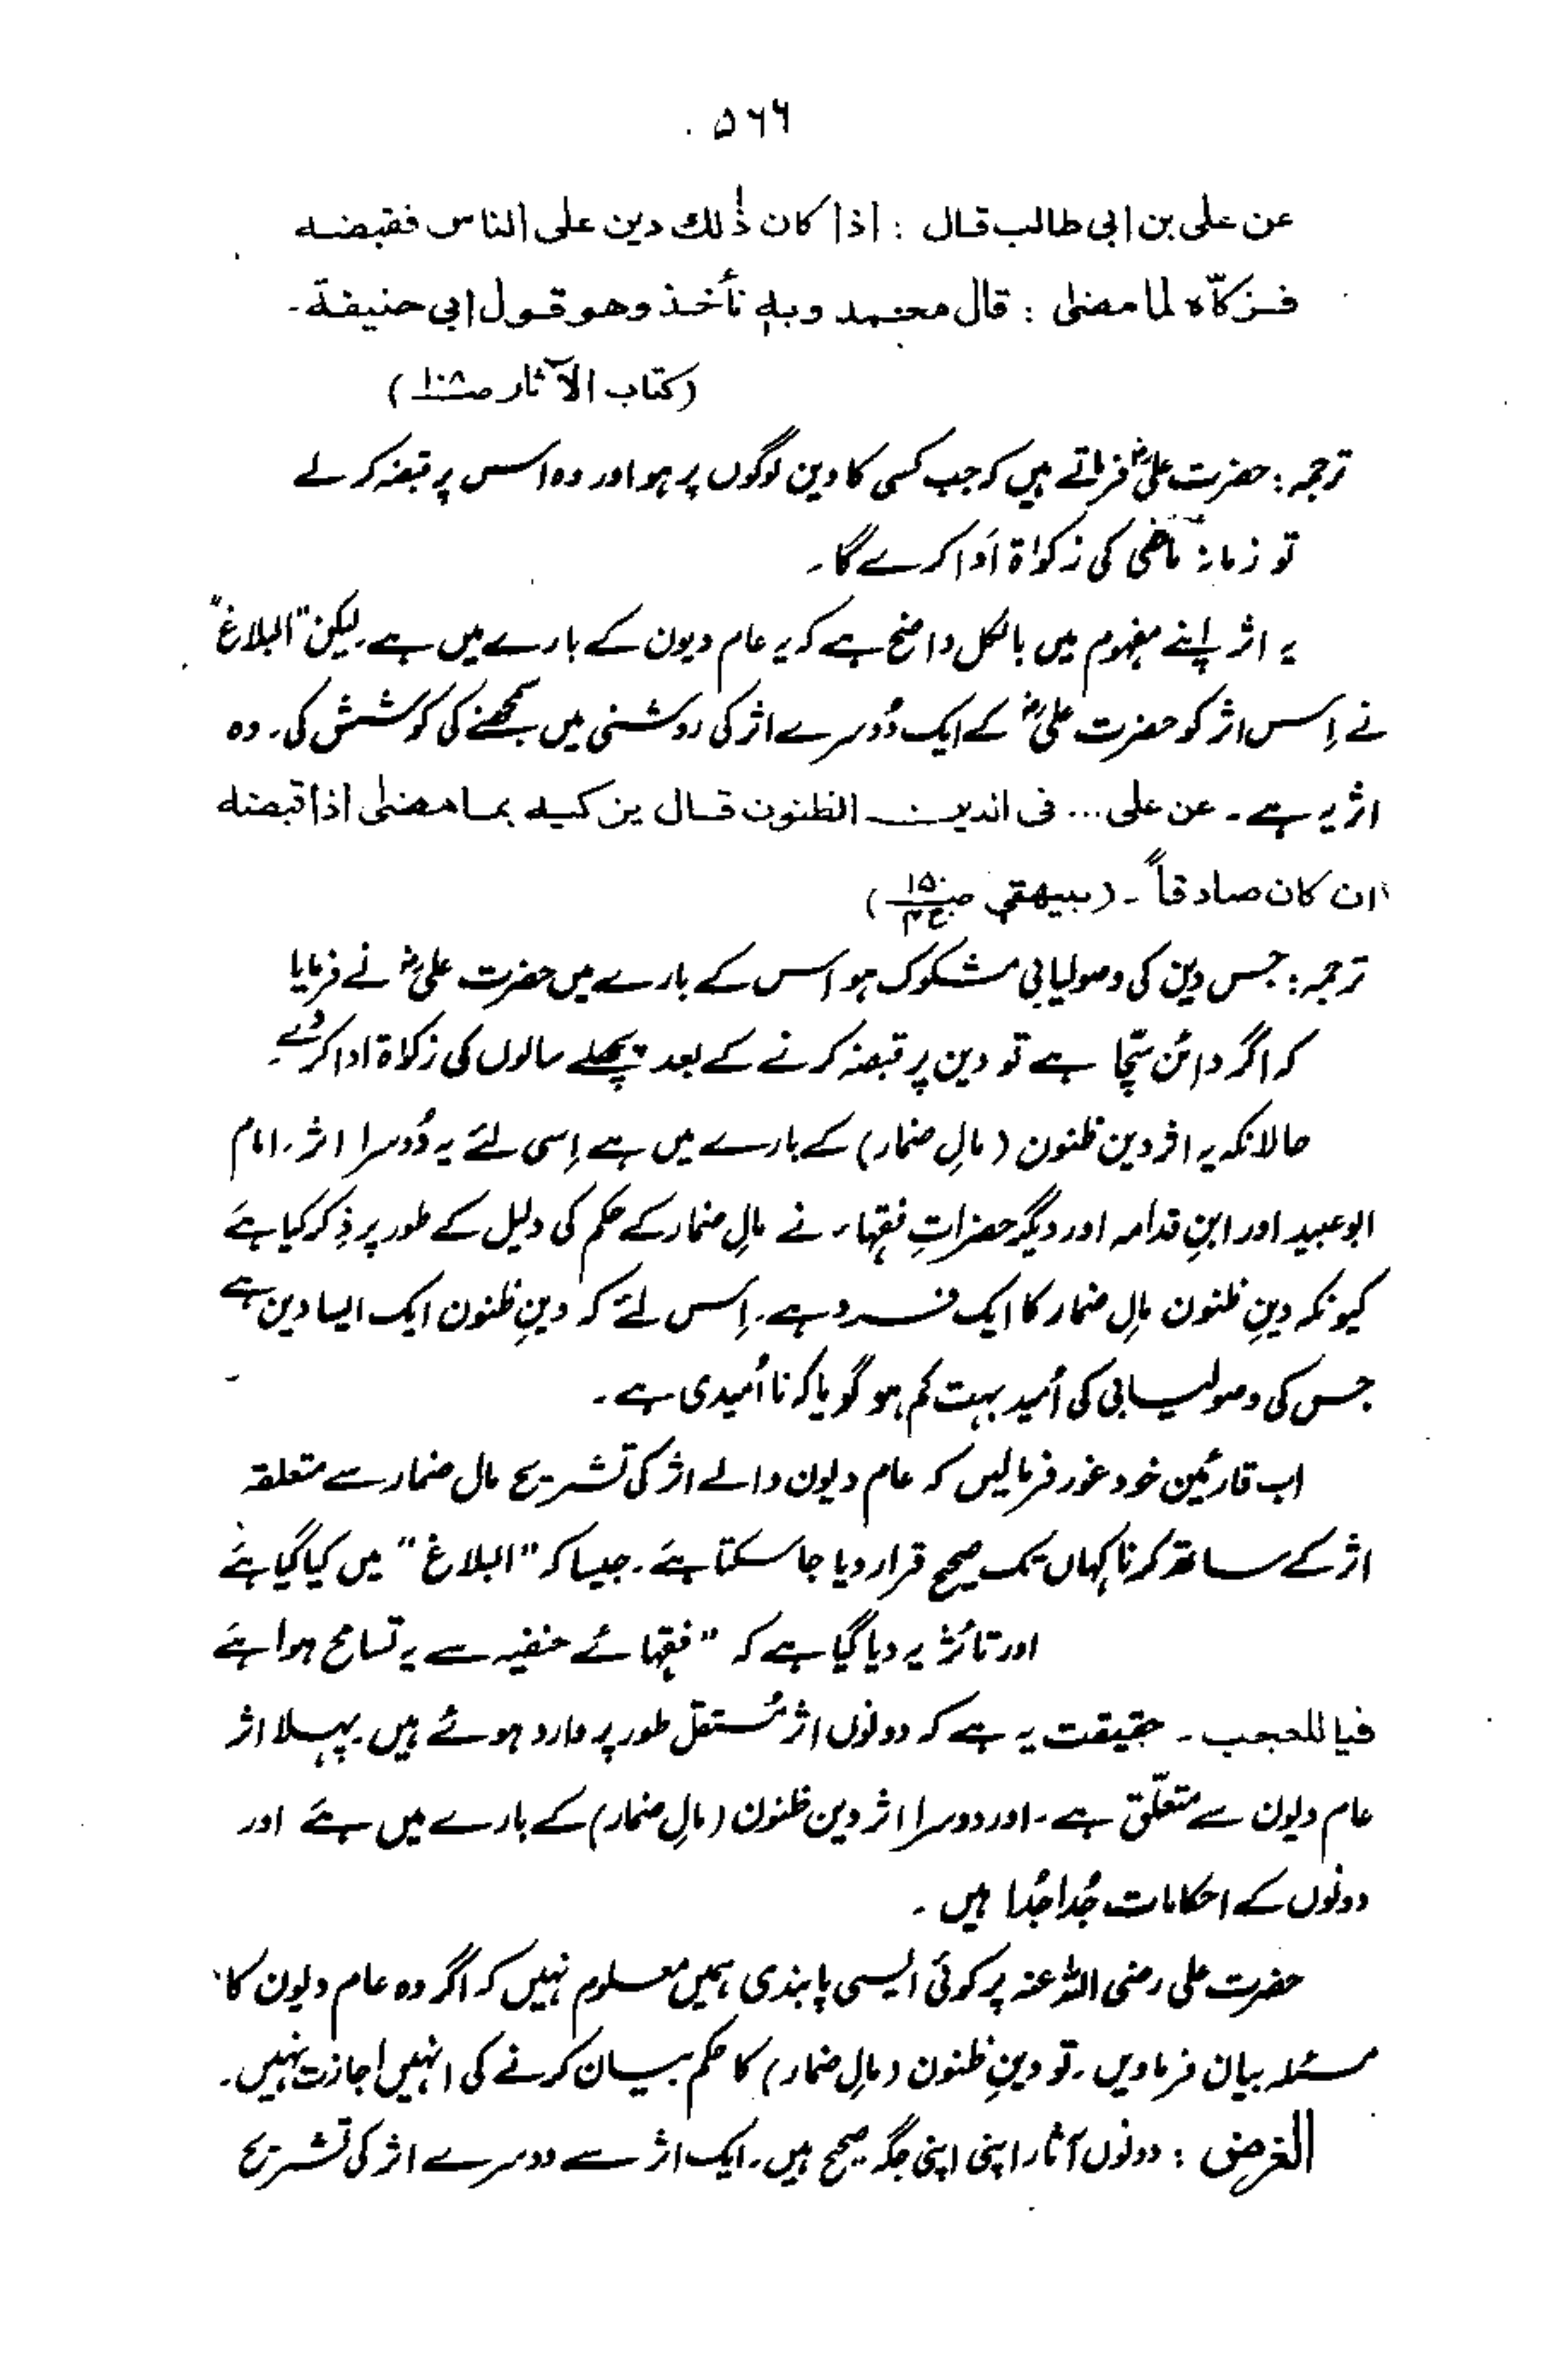 ۵۶۶
عن علی بن ابی طالب قال : اذا کان ذٰلك دین علی الناس فقبضه
فزکّاه لما مضٰی : قال محمد وبه نأخذ وهو قول ابی حنیفة۔
(کتاب الآثار صـ۱۰۸)
ترجمہ : حضرت علیؓ فرماتے ہیں کہ جب کسی کا دین لوگوں پر ہو اور وہ اس پر قبضہ کر لے
تو زمانہ ماضی کی زکوٰۃ اَدا کرے گا۔
یہ اثر اپنے مفہوم میں بالکل واضح ہے کہ یہ عام دیون کے بارے میں ہے۔ لیکن "البلاغ"
نے اِس اثر کو حضرت علیؓ کے ایک دُوسرے اثر کی روشنی میں سمجھنے کی کوشش کی۔ وہ
اثر یہ ہے۔ عن علی ... فی الدین الظنون قال یزکیه بما مضٰی اذا قبضه
ان کان صادقاً۔ (بیهقی صـ۱۵۰ ج۴)
ترجمہ : جس دین کی وصولیابی مشکوک ہو اس کے بارے میں حضرت علیؓ نے فرمایا
کہ اگر دائن سچّا ہے تو دین پر قبضہ کرنے کے بعد پچھلے سالوں کی زکاۃ ادا کر دے۔
حالانکہ یہ اثر دین ظنون (مالِ ضمار) کے بارے میں ہے اِسی لئے یہ دُوسرا اثر۔ امام
ابو عبید اور ابنِ قدامہ اور دیگر حضراتِ فقہاء نے مالِ ضمار کے حکم کی دلیل کے طور پر ذِکر کیا ہے
کیونکہ دینِ ظنون مالِ ضمار کا ایک فرد ہے۔ اِس لئے کہ دینِ ظنون ایک ایسا دین ہے
جس کی وصولیابی کی اُمید بہت کم ہو گویا کہ نا اُمیدی ہے۔
اب قارئین خود غور فرمالیں کہ عام دیون والے اثر کی تشریح مال ضمار سے متعلقہ
اثر کے ساتھ کرنا کہاں تک صحیح قرار دیا جا سکتا ہے۔ جیسا کہ "البلاغ" میں کیا گیا ہے
اور تاثر یہ دیا گیا ہے کہ "فقہائے حنفیہ سے یہ تسامح ہوا ہے
فیا للعجب ۔ حقیقت یہ ہے کہ دونوں اثر مُستقل طور پر وارد ہوئے ہیں۔ پہلا اثر
عام دیون سے متعلّق ہے۔ اور دوسرا اثر دین ظنون (مالِ ضمار) کے بارے میں ہے اور
دونوں کے احکامات جُدا جُدا ہیں۔
حضرت علی رضی اللہ عنہ پر کوئی ایسی پابندی ہمیں معلوم نہیں کہ اگر وہ عام دیون کا
مسئلہ بیان فرما دیں۔ تو دینِ ظنون (مالِ ضمار) کا حکم بیان کرنے کی انہیں اجازت نہیں۔
الغرض : دونوں آثار اپنی اپنی جگہ صحیح ہیں۔ ایک اثر سے دوسرے اثر کی تشریح